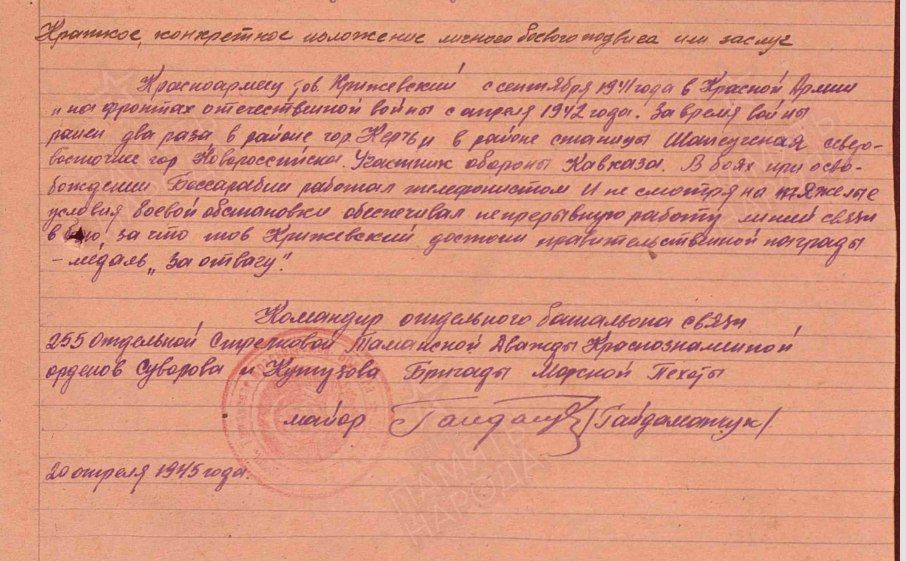 Краткое, конкретное изложение личного боевого подвига или заслуг
Красноармеец тов. Крижевский с сентября 1941 года в Красной Армии
и на фронтах отечественной войны с апреля 1942 года. За время войны
ранен два раза в районе гор. Керчь и в районе станицы северо-
восточнее гор Новороссийска. Участник обороны Кавказа. В боях при осво-
бождении Бессарабии работал телефонистом И не смотря на тяжелые
условия боевой обстановки обеспечивал непрерывную работу линий связи
в за что тов Крижевский достоин правительственной награды
- медаль „За отвагу".
Командир отдельного батальона связи
255 Отдельной Стрелковой Таманской Дважды Краснознаменной
орденов Суворова и Кутузова Бригады Морской Пехоты
майор /Гайдаматчук/
20 апреля 1945 года.
ПАМЯТЬ
НАРОДА